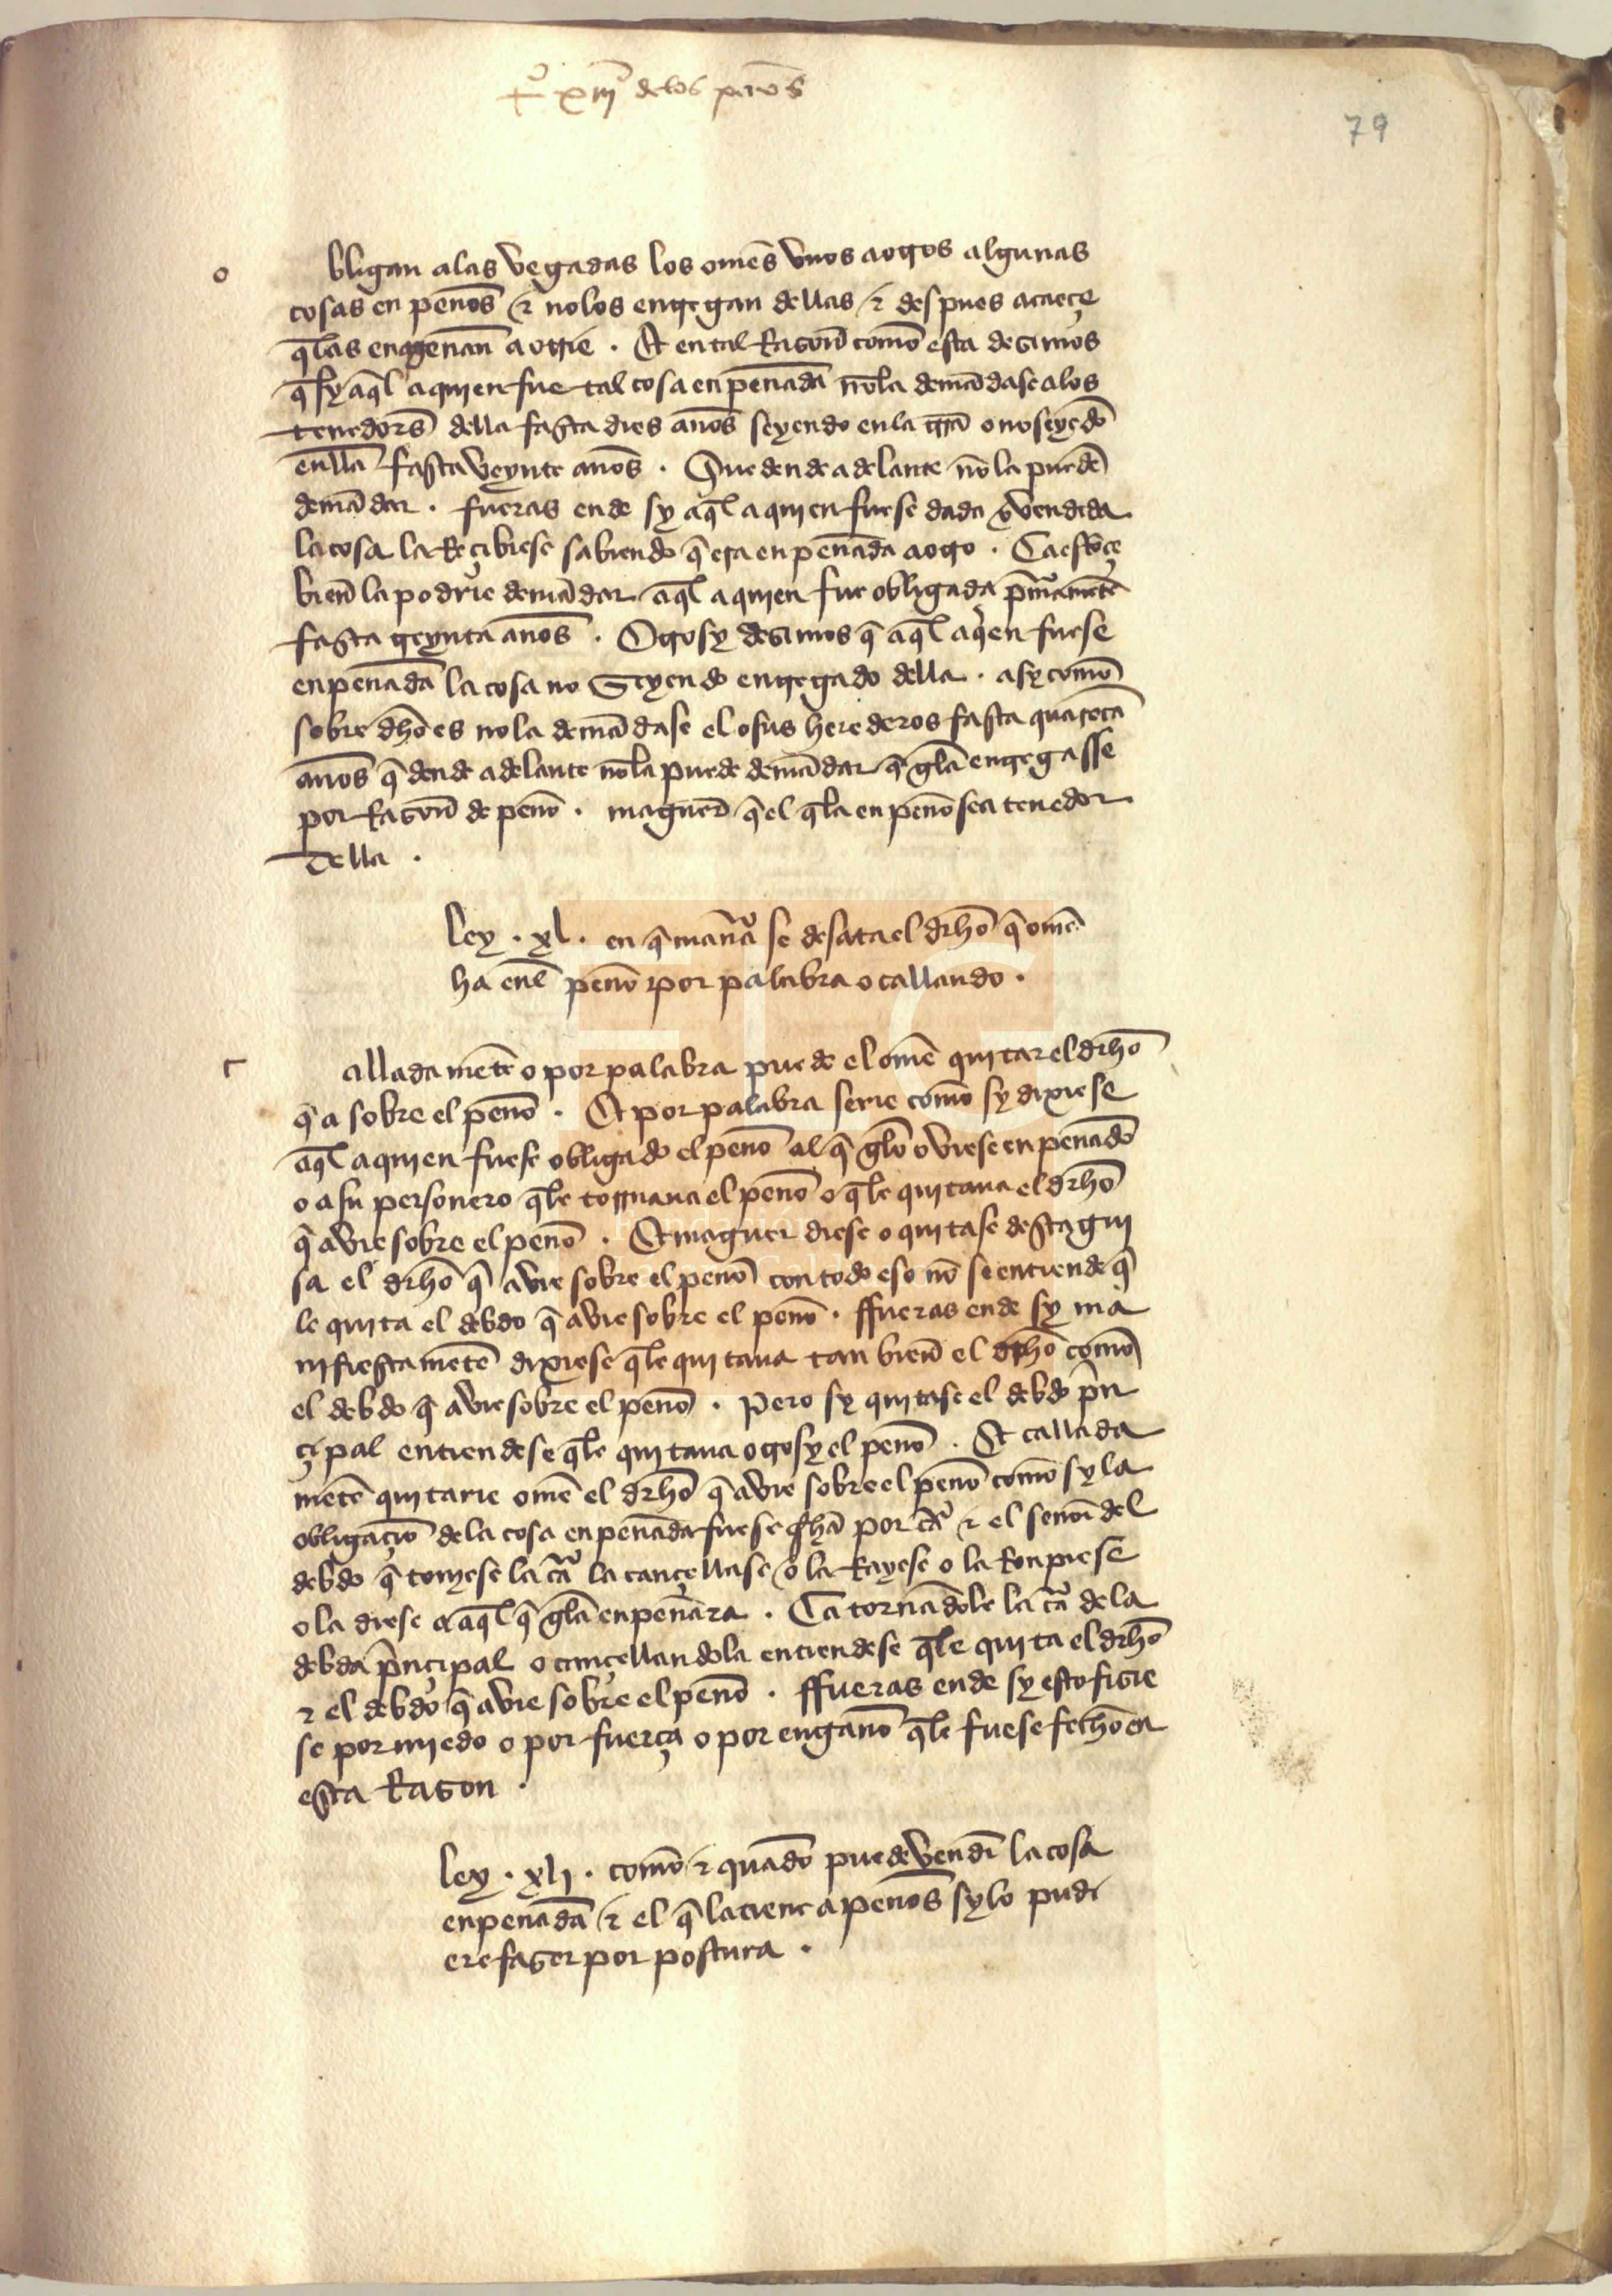 tº xiijº delos penōs
79
o bligan alas vegadas los omēs vnos aotros algunas
cosas en penōs & nolos entregan dellas & despues acaeçe
q̄las enagenan̄ a otrie . Et ental Razon̄ commō esta dezimos
q̄ sy aq̄l aquien fue tal cosa enpenada nōla demādase alos
tenedors̄ della fasta dies anōs seyendo enla trrā o noseyēdo
enlla fasta veynte anōs . Que dende adelante nōla puedē
demādar . fueras ende sy aq̄l aquien fuese dada o vendida
lacosa la Reçibiese sabiendo q̄ era enpenāda aotro . Ca estōçe
bien̄ la podrie demādar aq̄l aquien fue obligada pimͣamētē
fasta treynta anōs . Otrosy dezimos q̄ aq̄l aqͥen fuese
enpenadā la cosa no Seyendo entregado della . asy commō
sobre dhō es nola demādase el osus herederos fasta quarētā
anōs q̄ dende adelante nōla puede demādar q̄ gela entregasse
por Razon̄ de penō . maguer̄ q̄ el q̄la enpenō sea tenedor
della .
Ley . xl . en q̄ manͣa se desata el drhō q̄ omē
ha enl̄ penō por palabra o callando .
c alladamētē o por palabra puede el omē quitar el drhō
q̄ a sobre el penō . Et por palabra serie commō sy dixiese
aq̄l aquien fuese obligado el penō al q̄ gelo oviese enpenadō
o asu personero q̄le tornaua el penō o q̄le quitaua el drhō
q̄ avie sobre el penō . Et maguer diese o quitase desta gui
sa el drhō q̄ avie sobre el penō con todo eso nō se entiende q̄
le quita el debdo q̄ avie sobre el penō . ffueras ende sy ma
nifiestamētē dixiese q̄le quitaua tan bien̄ el drhō commō
el debdo q̄ avie sobre el penō . Pero sy quitase el debdo pͥn
çipal entiendese q̄le quitaua otrosy el penō . Et callada
mētē quitarie omē el drhō q̄ avie sobre el penō commō sy la
obligaçiō de la cosa enpenāda fuese fhā por cͣta & el senor̄ del
debdo q̄ touiese la cͣta la cançellase o la Rayese o la Ronpiese
o la diese a aq̄l q̄ gela enpenāra . Ca tornādole la cͣta dela
debda pͥnçipal o cançellandola entiendese q̄le quita el drhō
& el debdo q̄ avie sobre el penō . ffueras ende sy esto fizie
se por miedo o por fuerça o por enganō q̄le fuese fechō en
esta Razon .
Ley . xlj . commō & quādo puede vendr̄ la cosa
enpenadā & el q̄ la tiene apenōs sy lo pudi
ere fazer por postura .